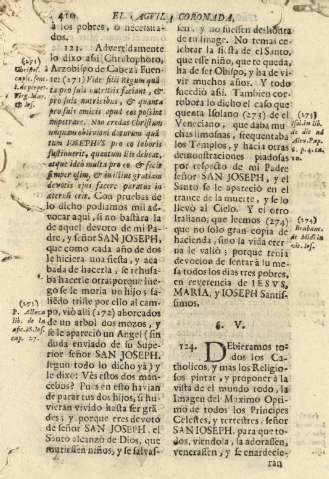 410 EL AGVILA CORONADA,
à los pobres, o necesita-
dos.
121. Advertidamente
lo dixo assi Christophoro,
Arzobispo de Cabeza Fuen-
te: (271) Vide fili Regum quã-
ta pro suis nutritis faciant, &
pro suis nutribus, & quanta
pro suis amicis apud eos possint
impetrare. Nec credas Christum
unquam oblivioni daturum quã-
tum IOSEPHVS pro eo laboris
sustinuerit, quantum illi debeat,
atque ideò multa pro eo, & fecit
semper olim, & in illius gratiam
devotis ejus facere paratus in
æternũ erit. Con pruebas de
lo dicho podiamos mil ad-
vocar aqui, si no bastàra la
de aquel devoto de mi Pa-
dre, y señor SAN JOSEPH,
que como cada año de dos
le hiciera una fiesta, y aca-
bada de hacerla, se rehusa-
ba hacerle otra: porque lue-
go se le moria un hijo; sa-
liẽdo triste por ello al cam-
po, viò allì (272) ahorcados
de un arbol dos mozos, y
se le apareciò un Angel (sin
duda enviado de su Supe-
rior señor SAN JOSEPH,
segun todo lo dicho yà) y
le dixo: Vès estos dos man-
cebos? Pues en esto havian
de parar tus dos hijos, si hu-
vieran vivido hasta ser grã-
des; y porque eres devoto
de señor SAN JOSEPH, el
Santo alcanzò de Dios, que
muriessen niños, y se salvas-
(271)
(272)
P. Alloza
lib. de la
cap. 27.
sen, y no fuessen deshonra
de tu linage. No temas ce-
lebrar la fiesta de el Santo,
que esse niño, que te queda,
ha de ser Obispo, y ha de vi-
vir muchos años. Y todo
sucediò assi. Tambien cor-
robora lo dicho el caso que
quenta Isolano (273) de el
Veneciano, que daba mu-
chas limosnas, frequentaba
los Templos, y hacia otras
demonstraciones piadosas
por respecto de mi Padre
señor SAN JOSEPH, y el
Santo se le apareciò en el
trance de la muerte, y se lo
llevò al Cielo. Y el otro
Italiano, que leemos (274)
que no solo gran copia de
hacienda, sino la vida eter-
na le valiò; porque tenia
devocion de sentar à su me-
sa todos los dias tres pobres,
en reverencia de IESVS,
MARIA, y IOSEPH Santis-
simos.
(273)
(274)
§. V.
124. DEbieramos to-
dos los Ca-
tholicos, y mas los Religio-
sos pintar, y proponer à la
vista de el mundo todo, la
Imagen del Maximo Opti-
mo de todos los Principes
Celestes, y terrestres, señor
SAN IOSEPH, para que to-
dos, viendola, la adorassen,
venerassen, y se enardecie-
ran